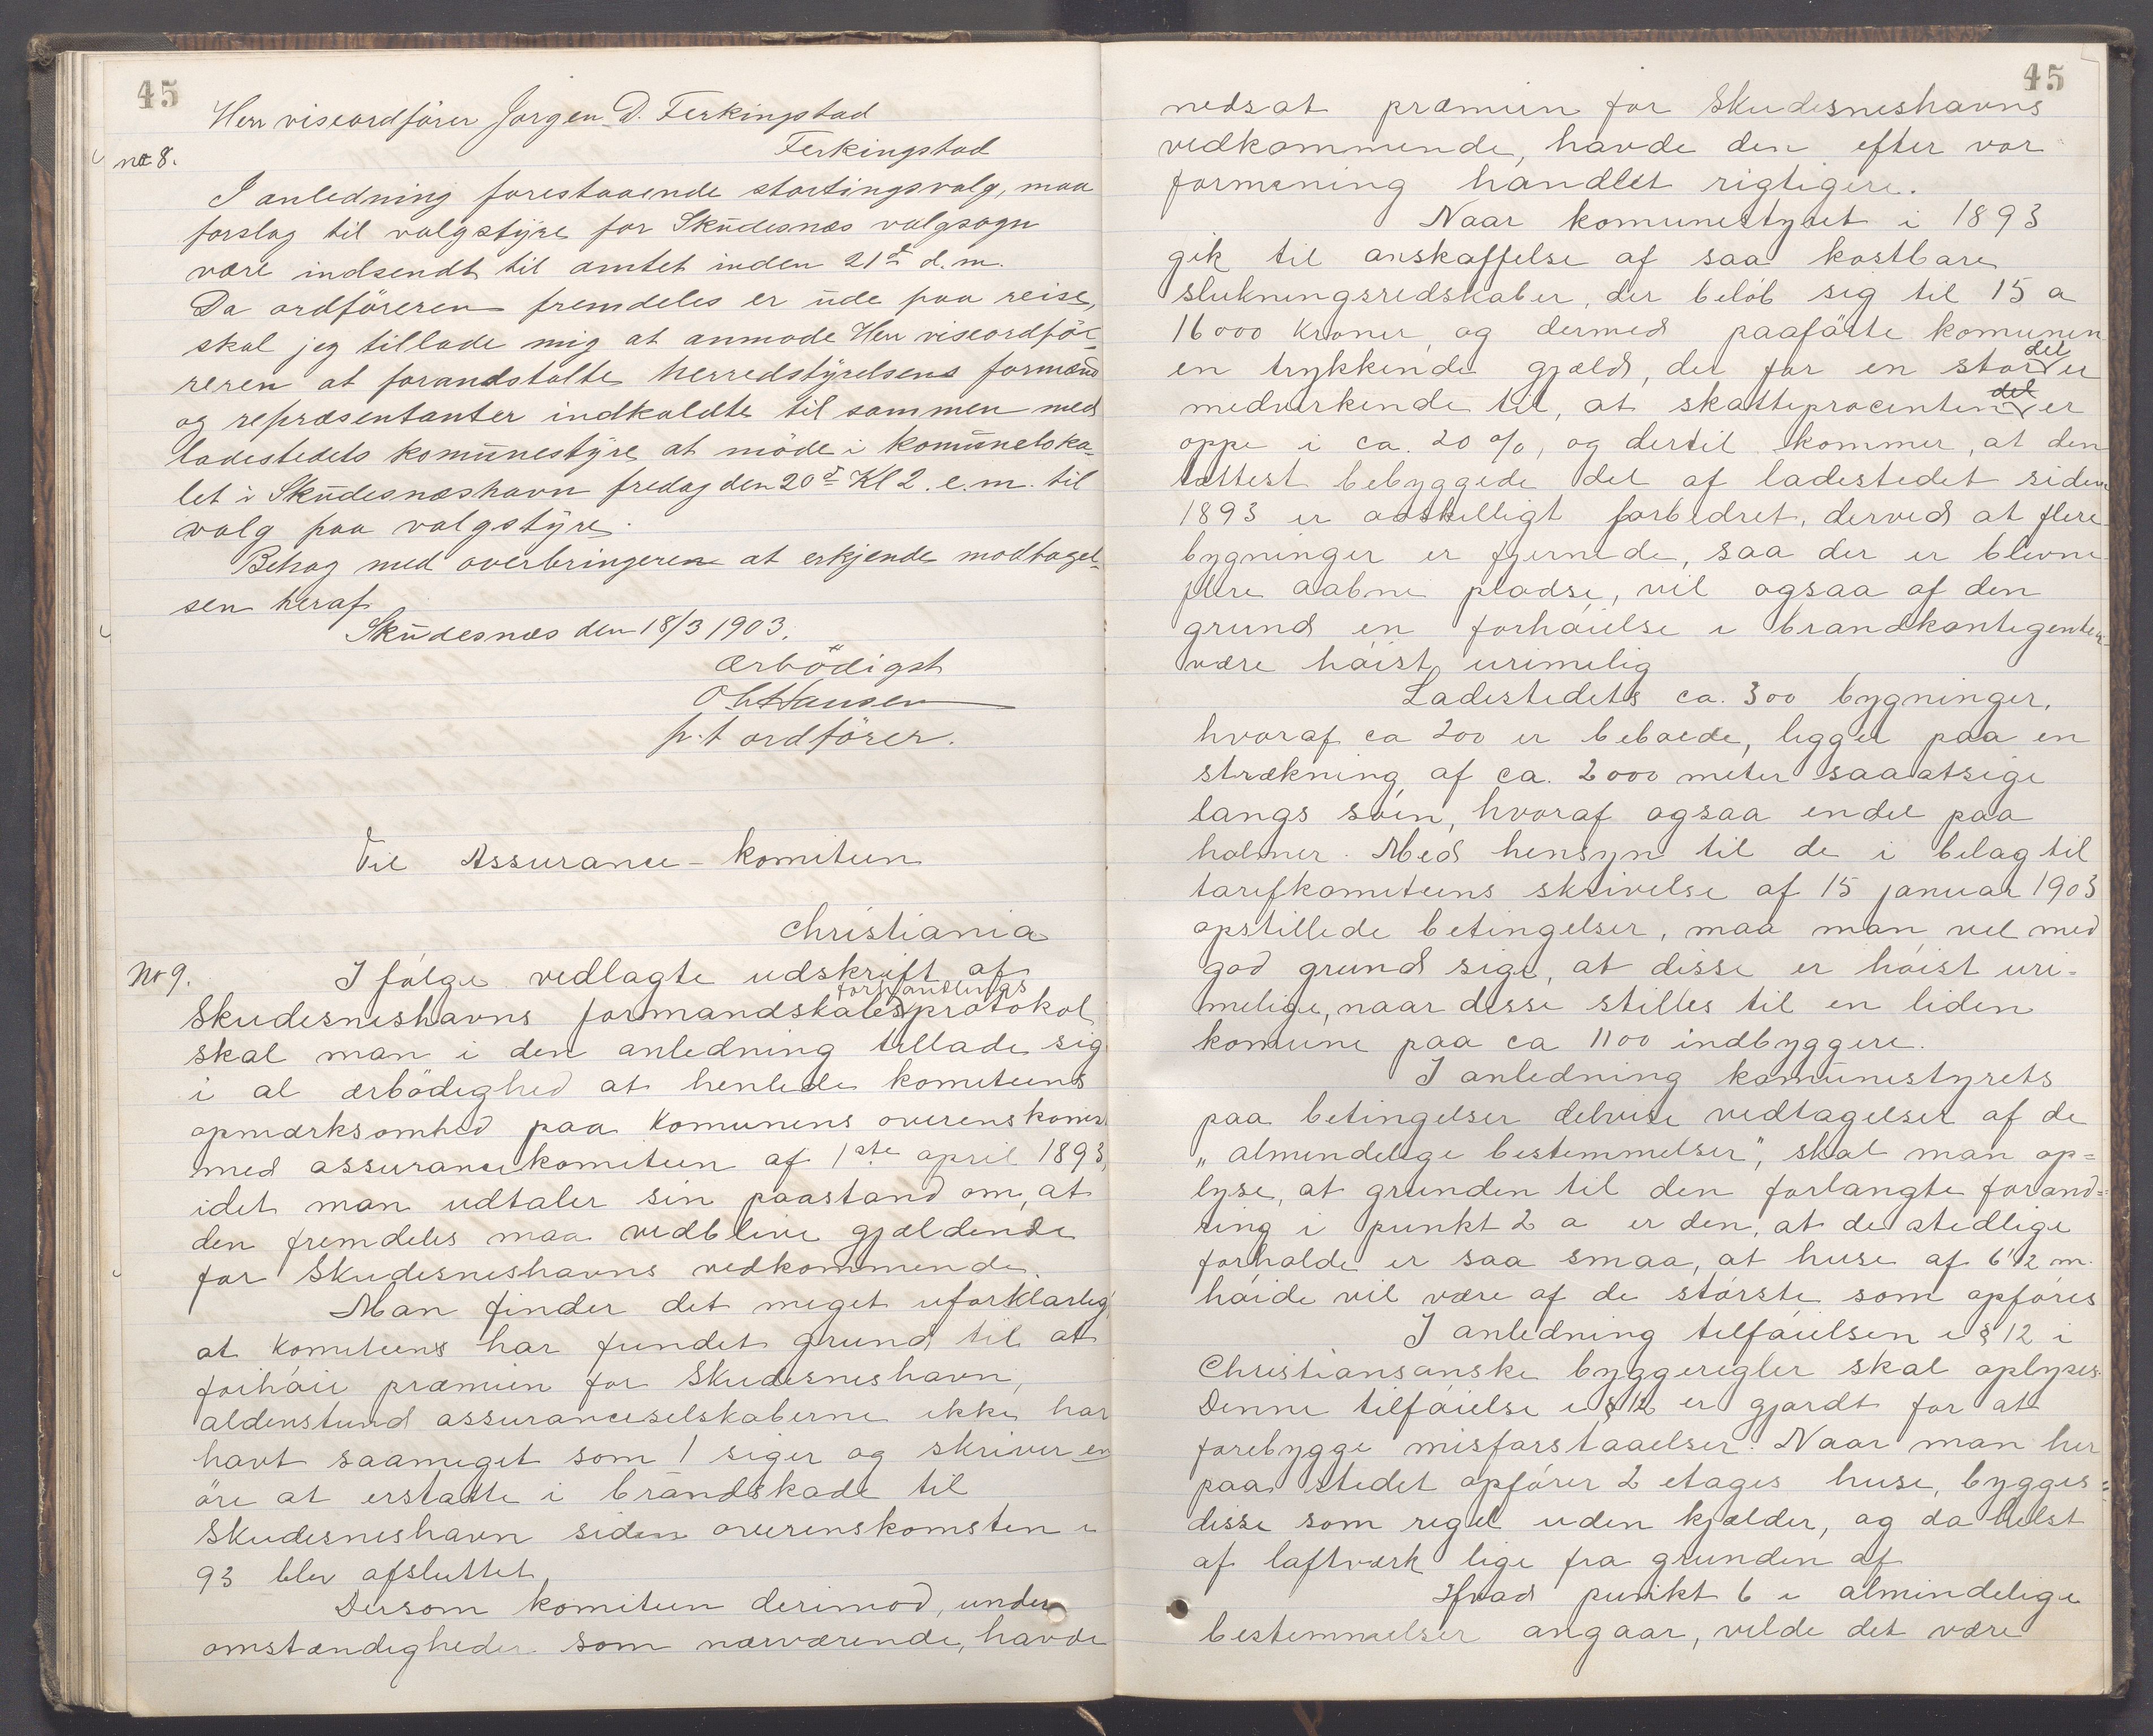 45
Herr viseordfører Jørgen D. Ferkingstad
Ferkingstad
no 8.
I anledning forestaaende stortingsvalg, maa
forslag til valgstyre for Skudesnæs valgsogn
være indsendt til amtet inden 21de d.m.
Da ordföreren fremdeles er ude paa reise,
skal jeg tillade mig at anmode Herr viseordfö-
reren at forandstalte herredstyrelsens formænd
og repræsentanter indkaldte til sammen med
ladestedets komunestyre at möde i komuneloka-
let i Skudesnæshavn fredag den 20de Kl 2. e.m. til
valg paa valgstyre.
Behag med overbringeren at erkjende modtagel-
sen heraf
Skudesnæs den 18/3 1903.
ærbödigst
O L Hansen
p.t ordförer.
Til Assurance-komiteen
Christiania
No 9.
I følge vedlagte udskrift af
forhandlings
Skudesneshavns formandskabs protokol
skal man i den anledning tillade sig
i al ærbödighed at henlede komiteens
opmærksomhed paa komunens overenskomst
med assurancekomiteen af 1ste april 1893,
idet man udtaler sin paastand om, at
den fremdeles maa vedblive gjældende
for Skudesneshavns vedkommende.
Man finder det meget uforklarlig,
at komiteens har fundet grund til at
forhöie præmien for Skudesneshavn,
aldenstund assuranceselskaberne ikke har
havt saameget som 1 siger og skriver en
öre at erstatte i brandskade til
Skudesneshavn siden overenskomsten i
93 blev afsluttet.
Dersom komiteen derimod, under
omstændigheder som nærværende, havde
45
nedsat præmien for Skudesneshavns
vedkommende, havde den efter vor
formening handlet rigtigere.
Naar komunestyret i 1893
gik til anskaffelse af saa kostbare
slukningsredskaber, der beløb sig til 15 a
16000 kroner, og dermed paaførte komunen
en trykkende gjæld, der for en stor del er
medvirkende til, at skatteprocenten del er
oppe i ca. 20 %, og dertil kommer, at den
tættest bebyggede del af ladestedet siden
1893 er adskilligt forbedret, derved at flere
bygninger er fjernede, saa der er blevne
flere aabne pladse, vil ogsaa af den
grund en forhøielse i brandkontigenten
være høist urimelig
Ladestedets ca. 300 bygninger,
hvoraf ca 200 er beboede, ligger paa en
strækning af ca. 2000 meter saaatsige
langs søen, hvoraf ogsaa endel paa
holmer. Med hensyn til de i bilag til
tarifkomiteens skrivelse af 15 januar 1903
opstillede betingelser, maa man vel med
god grund sige, at disse er høist uri-
melige, naar disse stilles til en liden
komune paa ca 1100 indbyggere.
I anledning komunestyrets
paa betingelser delvise vedtagelser af de
"almindelige bestemmelser", skal man op-
lyse, at grunden til den forlangte forand-
ring i punkt 2 a er den, at de stedlige
forholde er saa smaa, at huse af 6 1/2 m.
høide vil være af de største som opføres
I anledning tilføielsen i § 12 i
Christiansanske byggeregler skal oplyses.
Denne tilføielse i § 12 er gjordt for at
forebygge misforstaaelser. Naar man her
paa stedet opfører 2 etages huse, bygges
disse som regel uden kjælder, og da helst
af laftværk lige fra grunden af
Hvad punkt 6 i almindelige
bestemmelser angaar, vilde det være